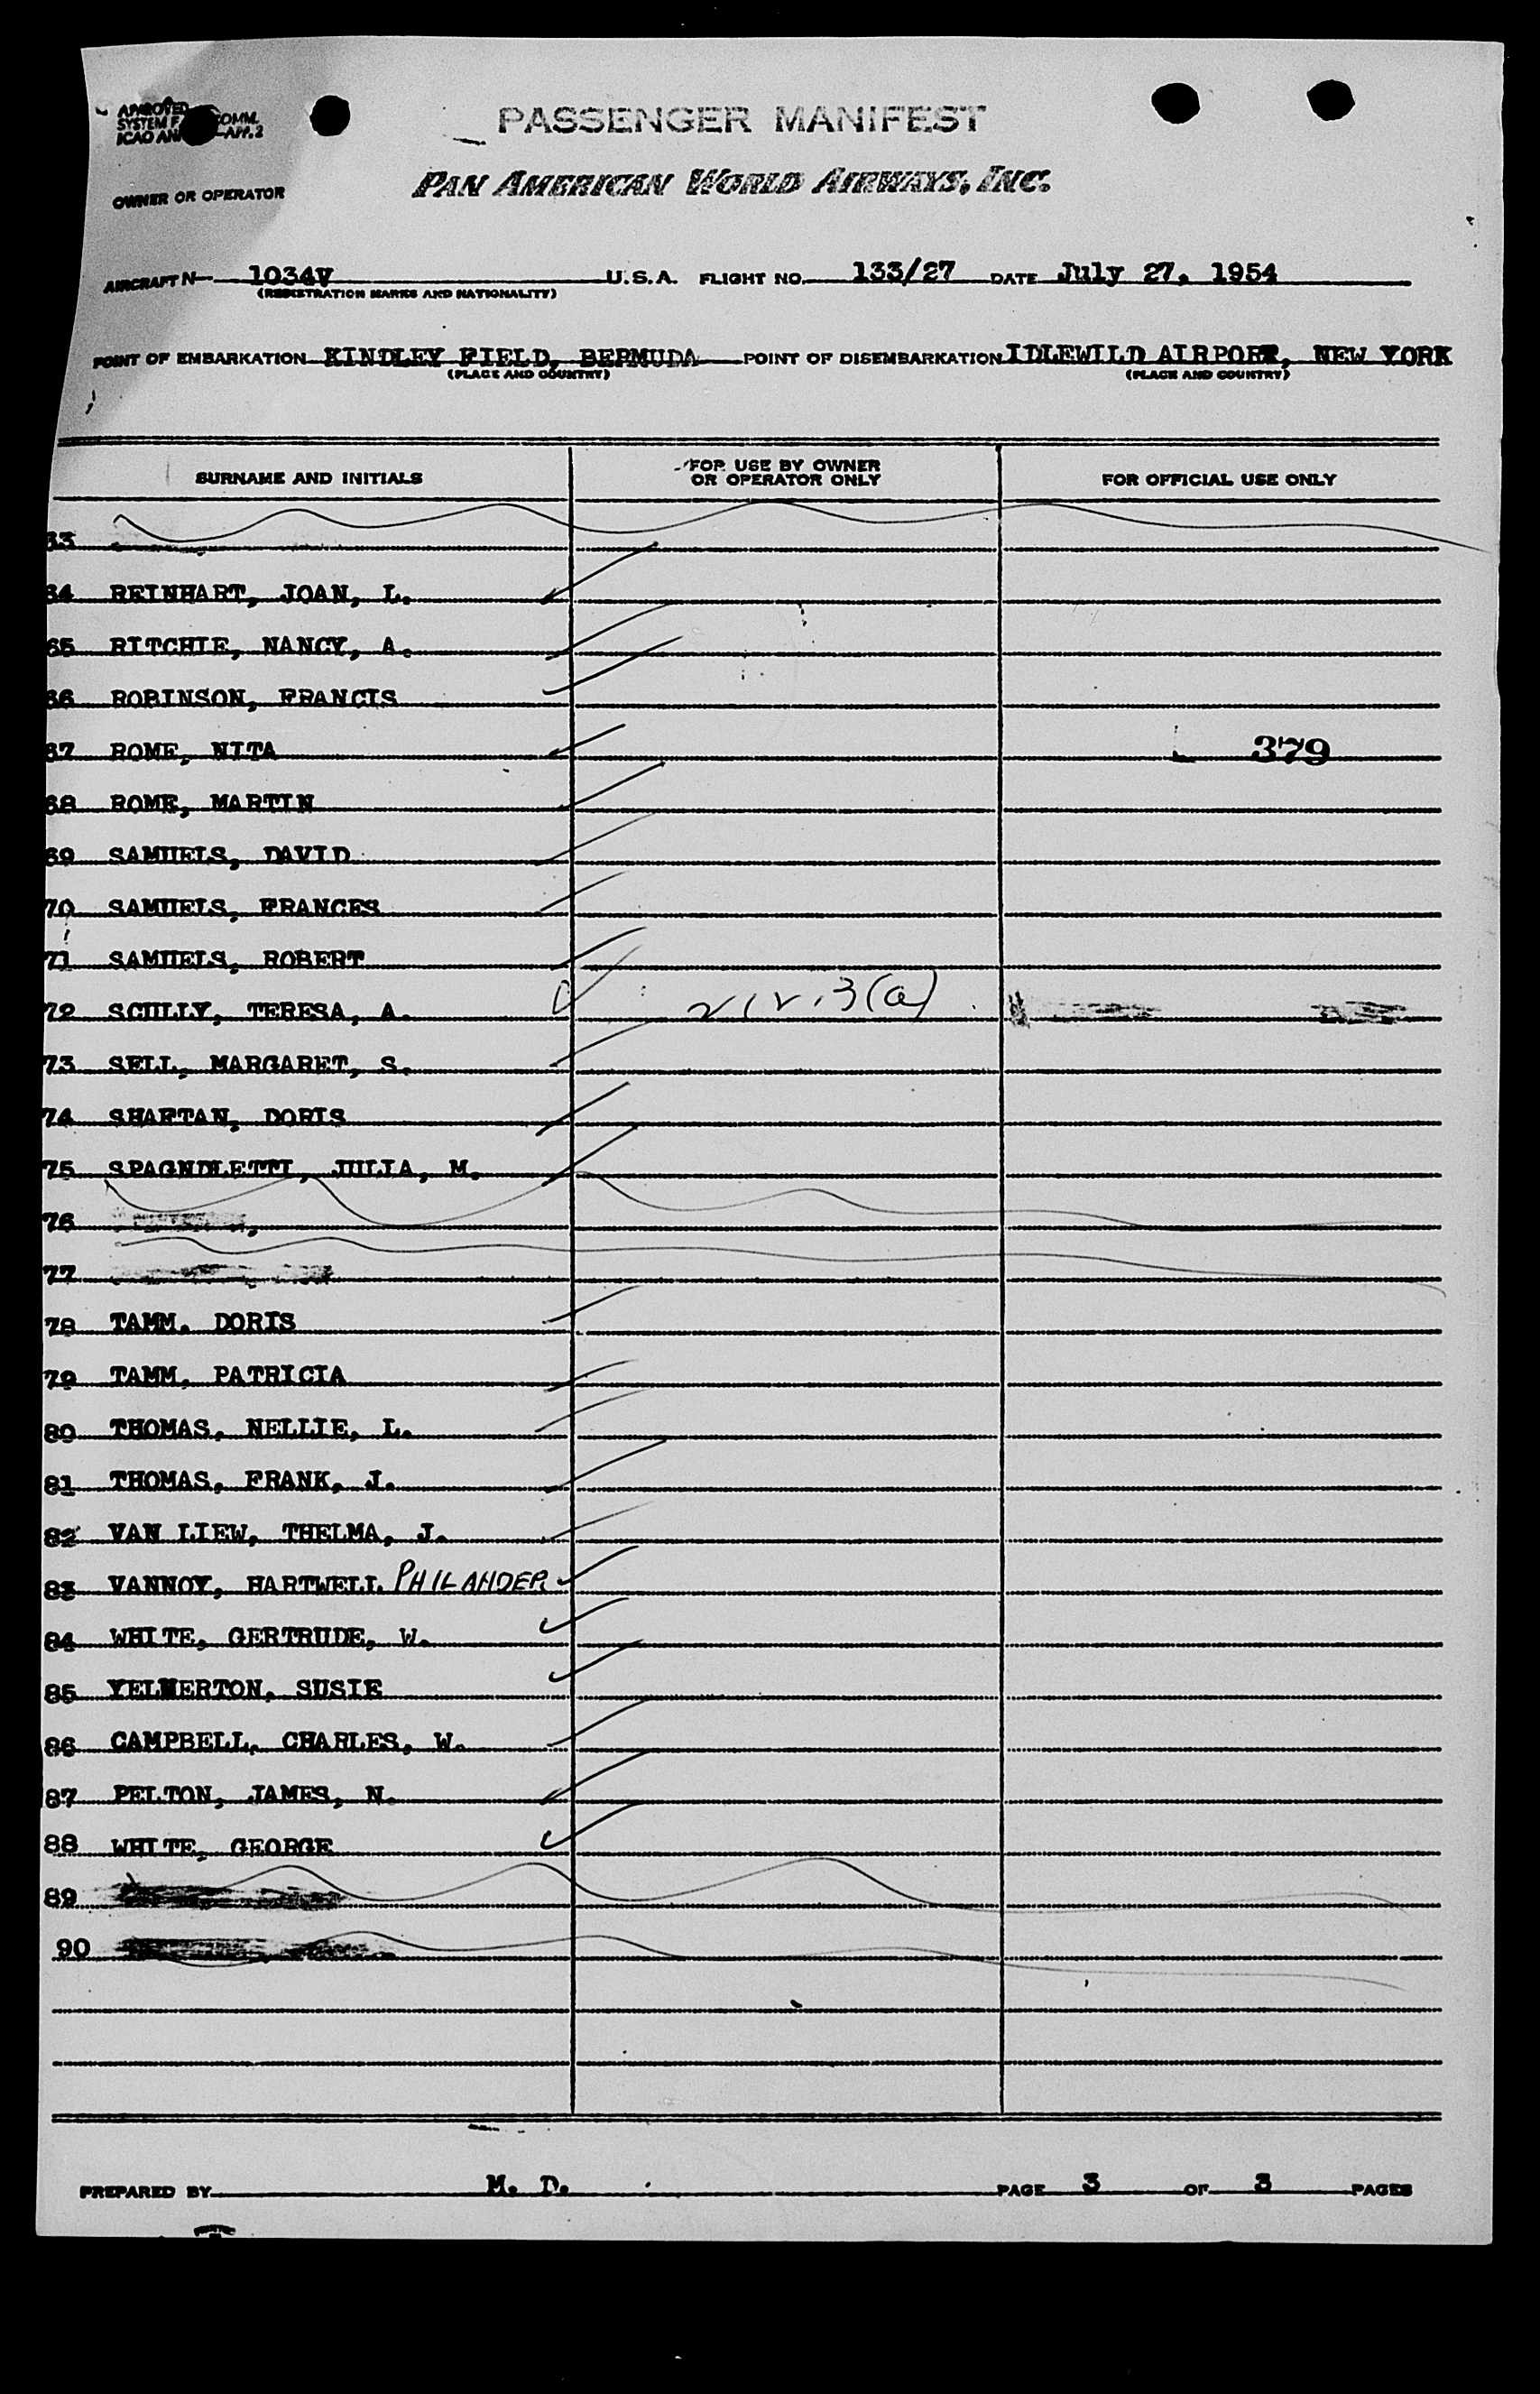 APPROVED
SYSTEM F COMM.
ICAO AN APP. 2
PASSENGER MANIFEST
OWNER OR OPERATOR PAN AMERICAN WORLD AIRWAYS, INC.
AIRCRAFT N 1034V U.S.A. FLIGHT NO. 133/27 DATE July 27, 1954
(REGISTRATION MARKS AND NATIONALITY)
POINT OF EMBARKATION KINDLEY FIELD, BERMUDA POINT OF DISEMBARKATION IDLEWILD AIRPORT, NEW YORK
(PLACE AND COUNTRY) (PLACE AND COUNTRY)
SURNAME AND INITIALS FOR USE BY OWNER OR OPERATOR ONLY FOR OFFICIAL USE ONLY
63
64 REINHART, JOAN, L.
65 RITCHIE, NANCY, A.
66 ROBINSON, FRANCIS
67 ROME, NITA 379
68 ROME, MARTIN
69 SAMUELS, DAVID
70 SAMUELS, FRANCES
71 SAMUELS, ROBERT
72 SCULLY, TERESA, A. 3(a)
73 SELL, MARGARET, S.
74 SHAFTAN, DORIS
75 SPAGNOLETTI, JULIA, M.
76
77
78 TAMM, DORIS
79 TAMM, PATRICIA
80 THOMAS, NELLIE, L.
81 THOMAS, FRANK, J.
82 VAN LIEW, THELMA, J.
83 VANNOY, HARTWELL PHILANDER
84 WHITE, GERTRUDE, W.
85 YELMERTON, SUSIE
86 CAMPBELL, CHARLES, W.
87 PELTON, JAMES, N.
88 WHITE, GEORGE
89
90
PREPARED BY M. D. PAGE 3 OF 3 PAGES